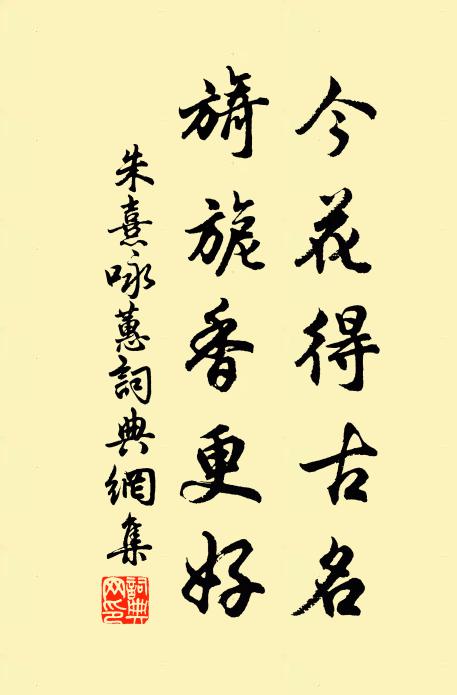 今花得古名
旖旎香更好
朱熹咏蕙詞典網集
詞典网印